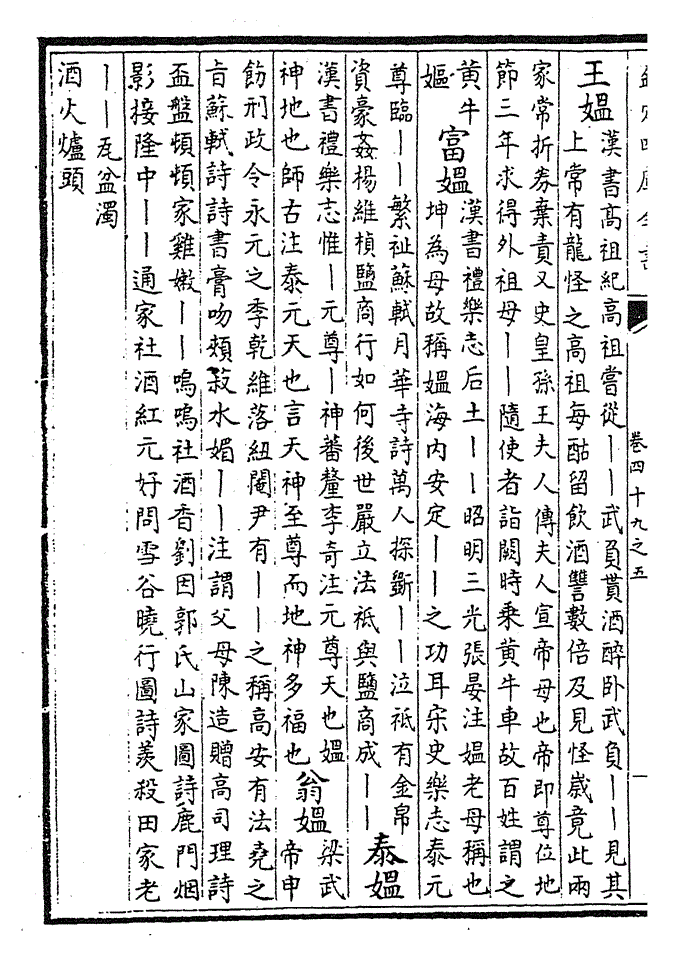 欽定四庫全書
卷四十九之五
一
王媼
漢書高祖紀高祖嘗從——武負貰酒醉卧武負——見其
上常有龍怪之高祖每酤留飲酒讐數倍及見怪歲竟此兩
家常折券棄責又史皇孫王夫人傳夫人宣帝母也帝即尊位地
節三年求得外祖母——隨使者詣闕時乗黄牛車故百姓謂之
黄牛
嫗
富媼
漢書禮樂志后土——昭明三光張晏注媼老母稱也
坤為母故稱媼海内安定——之功耳宋史樂志泰元
尊臨——繁祉蘇軾月華寺詩萬人探斸——泣祗有金帛
資豪姦楊維楨鹽商行如何後世嚴立法祗與鹽商成——
泰媼
漢書禮樂志惟—元尊—神蕃釐李奇注元尊天也媼
神地也師古注泰元天也言天神至尊而地神多福也
翁媼
梁武
帝申
飭刑政令永元之季乾維落紐閹尹有——之稱高安有法堯之
旨蘇軾詩詩書膏吻頰菽水媚——注謂父母陳造贈高司理詩
盃盤頓頓家雞嫩——嗚嗚社酒香劉因郭氏山家圖詩鹿門烟
影接隆中——通家社酒紅元好問雪谷曉行圖詩羨殺田家老
——瓦盆濁
酒火爐頭